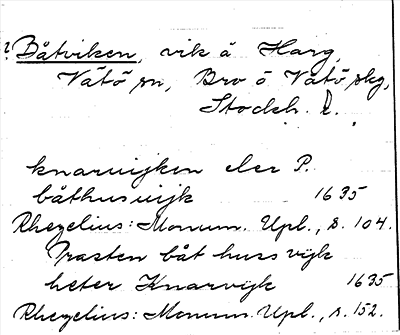 ? Båtviken, vik å Harg,
Vätö sn, Bro o Vätö skg,
Stockh. l.
knarwijken eler P.
båthuswijk 1635
Rhezelius: Monum. Upl., s. 104.
Prasten båt huss vijk
heter Knarvijk 1635
Rhezelius: Monum. Upl., s. 152.